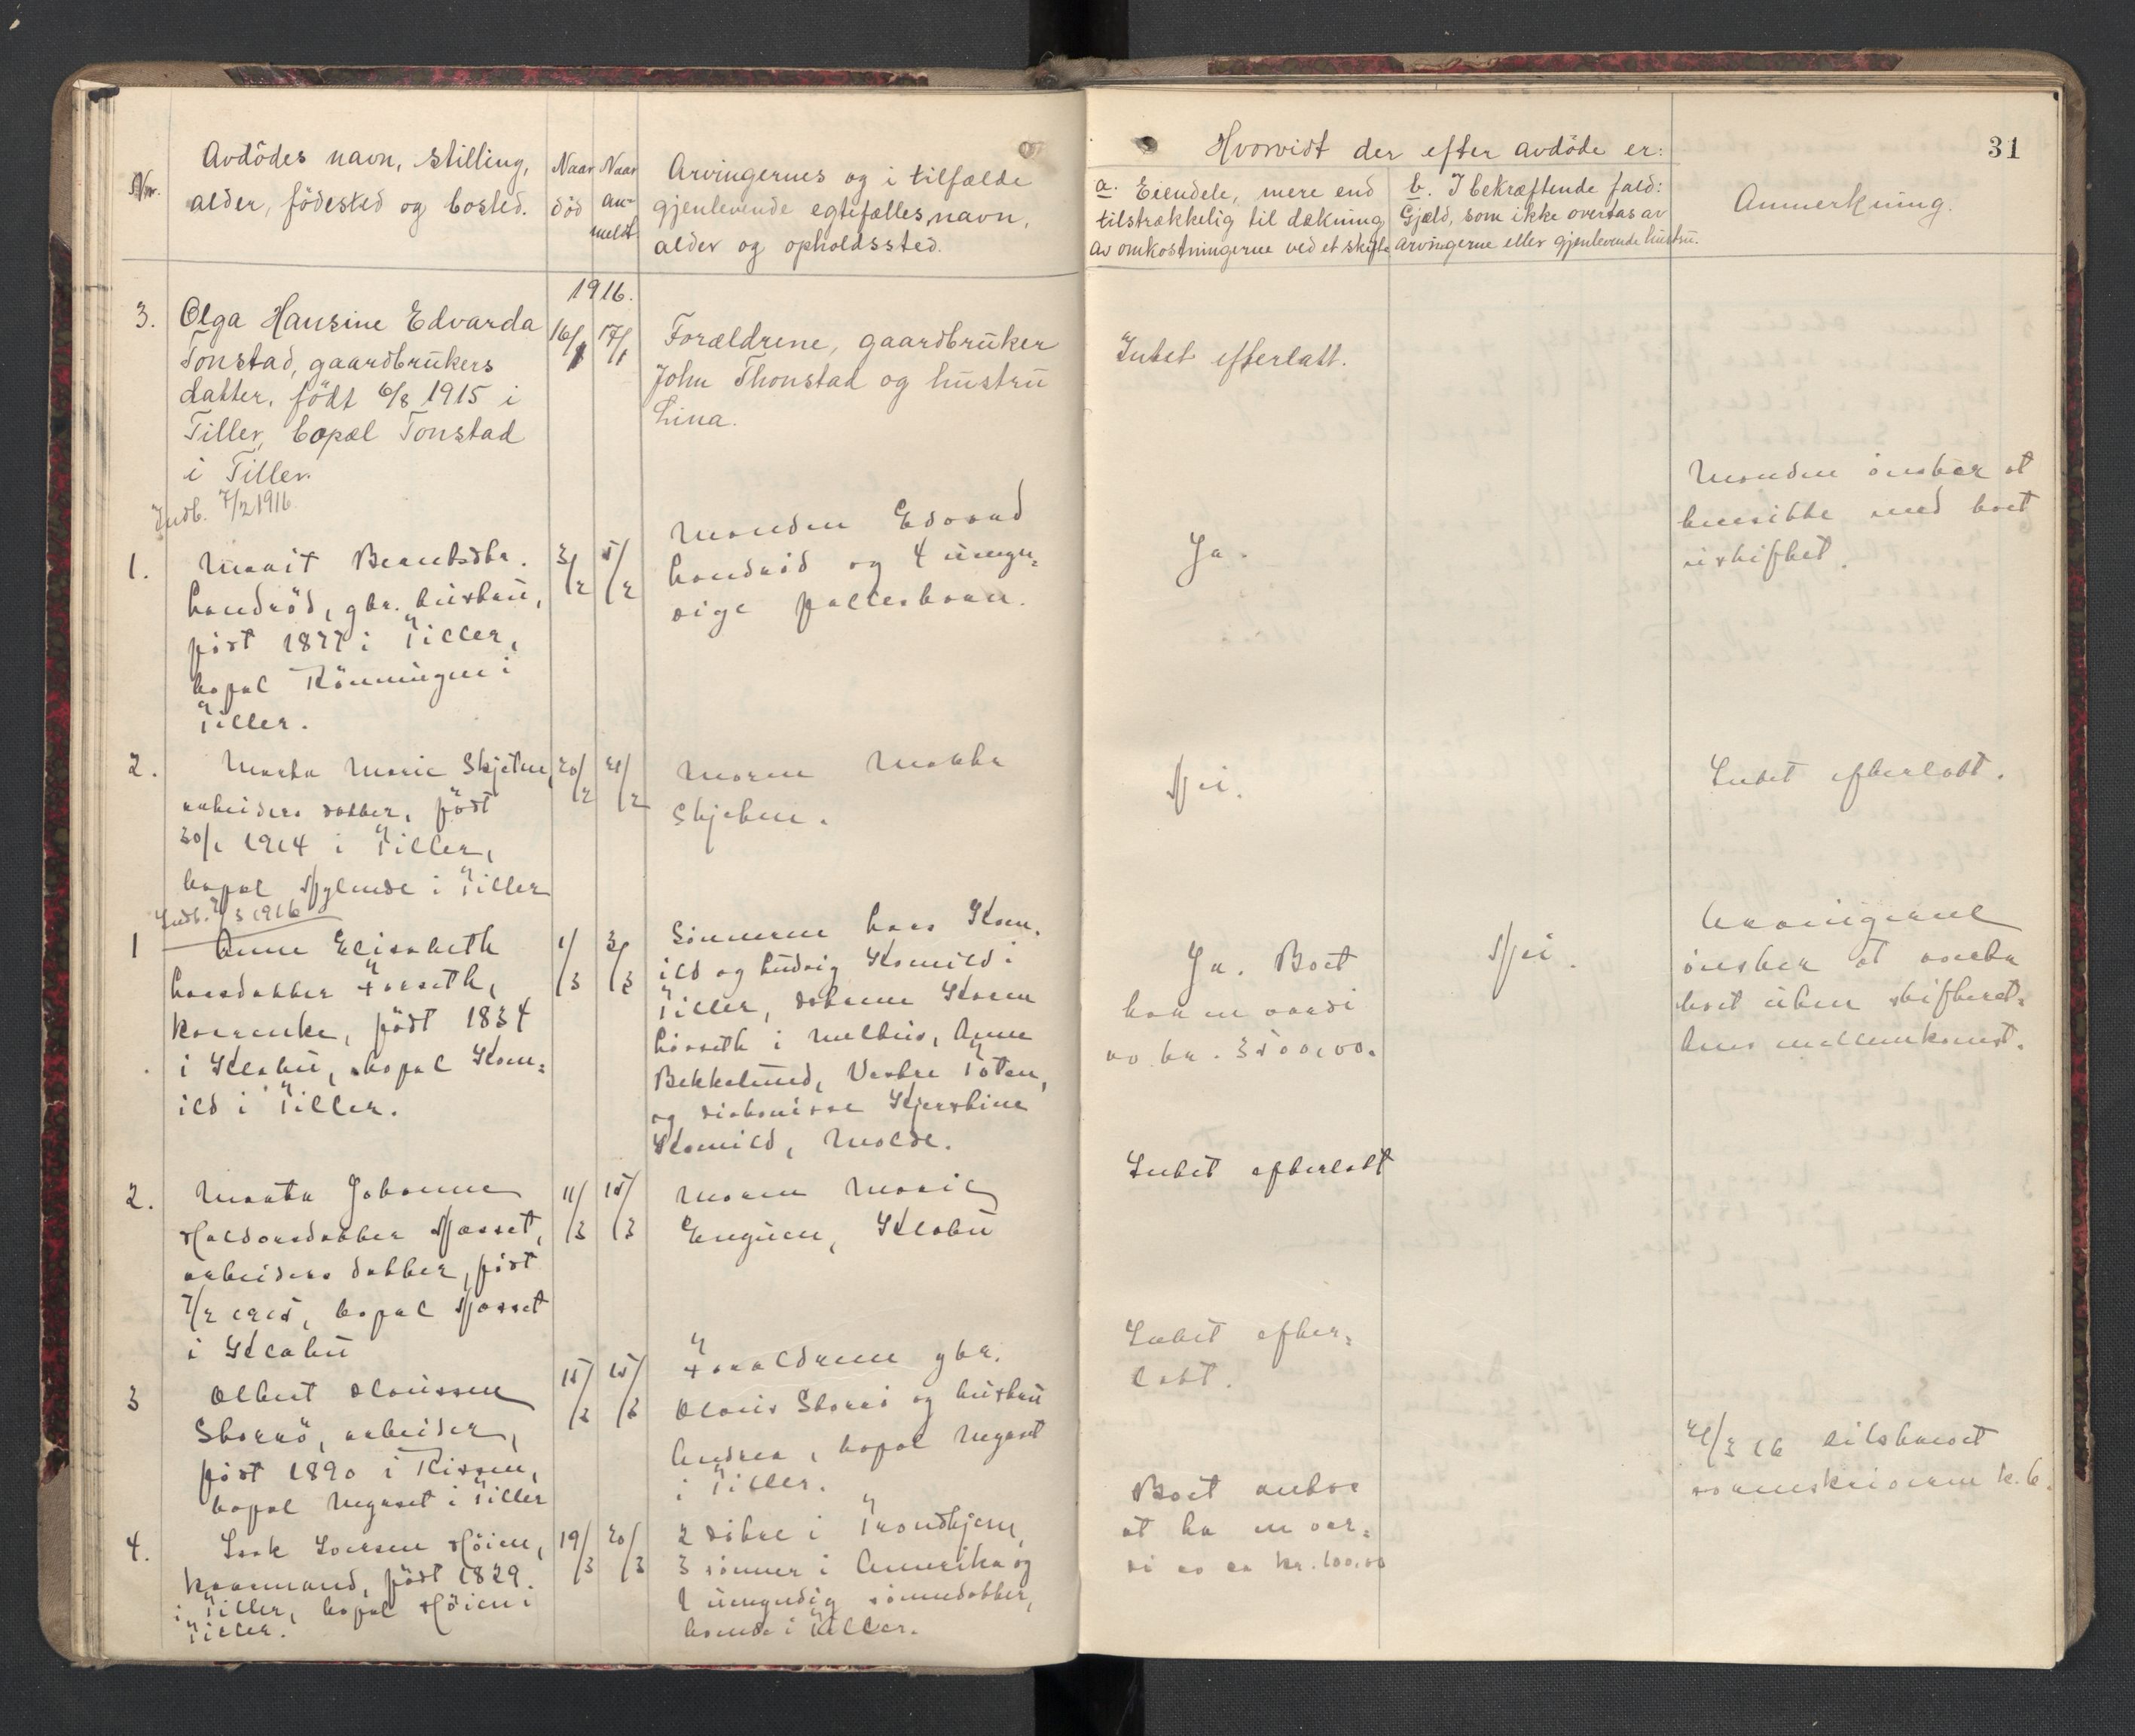 31
Nr.
Avdødes navn, stilling,
alder, fødested og bosted.
Naar
død
Naar
an-
meldt
Arvingernes og i tilfælde
gjenlevende egtefælles navn,
alder og opholdssted.
Hvorvidt der efter avdøde er:
a. Eiendele, mere end
tilstrækkelig til dækning
av omkostningerne ved et skifte
b. I bekræftende fald:
Gjæld, som ikke overtas av
arvingerne eller gjenlevende hustru.
Anmerkning.
1916.
3.
Olga Hansine Edvarda
Tonstad, gaardbrukers
datter, født 6/8 1915 i
Tiller, bopæl Tonstad
i Tiller.
16/1
17/1
Forældrene, gaardbruker
John Thonstad og hustru
Lina.
Intet efterlatt.
Indb. 7/2 1916.
1.
Marit Berntsdtr.
gbr. hustru,
født 1877 i Tiller,
bopæl Rönningen i
Tiller.
3/2
5/2
Manden Edvard
og 4 umyn-
dige fællesbarn.
Ja.
Manden ønsker at
hensitte med boet
uskiftet.
2.
Marta Marie Skjetne,
arbeiders datter, født
30/1 1914 i Tiller,
bopæl Nylende i Tiller
20/2
21/2
Moren Marta
Skjetne.
Nei.
Intet efterlatt.
Indb. 2/3 1916
1
Anne Elisabeth
Larsdatter Forseth,
kaarenke, født 1834
i Klæbu, bopæl Kom-
ild i Tiller.
1/3
3/3
Sønnerne Lars Kom-
ild og Ludvig Komild i
Tiller, døtrene Karen
i Melhus, Anne
Bekkelund, Vestre Toten,
og diakonisse Kjerstine
Komild, Molde.
Ja. Boet
har en værdi
av kr. 3500,00.
Nei.
Arvingerne
ønsker at overta
boet uten skifteret-
tens mellemkomst.
2.
Marta Johanne
Haldorsdatter Næsset,
arbeiders datter, født
7/2 1915, bopæl Næsset
i Klæbu
11/3
15/3
Moren Marie
Engum, Klæbu
Intet efterlatt
3
Albert Olaussen
Storrø, arbeider,
født 1890 i Rissen,
bopæl Nygaset i Tiller
15/3
15/3
Forældrene gbr.
Olaus Storrø og hustru
Andrea, bopæl Nygaset
i Tiller.
Intet efter-
latt.
4.
Isak Larsen Høien,
kaarmand, født 1829
i Tiller, bopæl Høien i
Tiller.
19/3
20/3
2 døtre i Trondhjem,
3 sønner i Amerika og
1 umyndig sønnedatter,
boende i Tiller.
Boet antas
at ha en vær-
di av ca kr. 100,00
21/3 16 tilskrevet
sorenskriveren h.b.